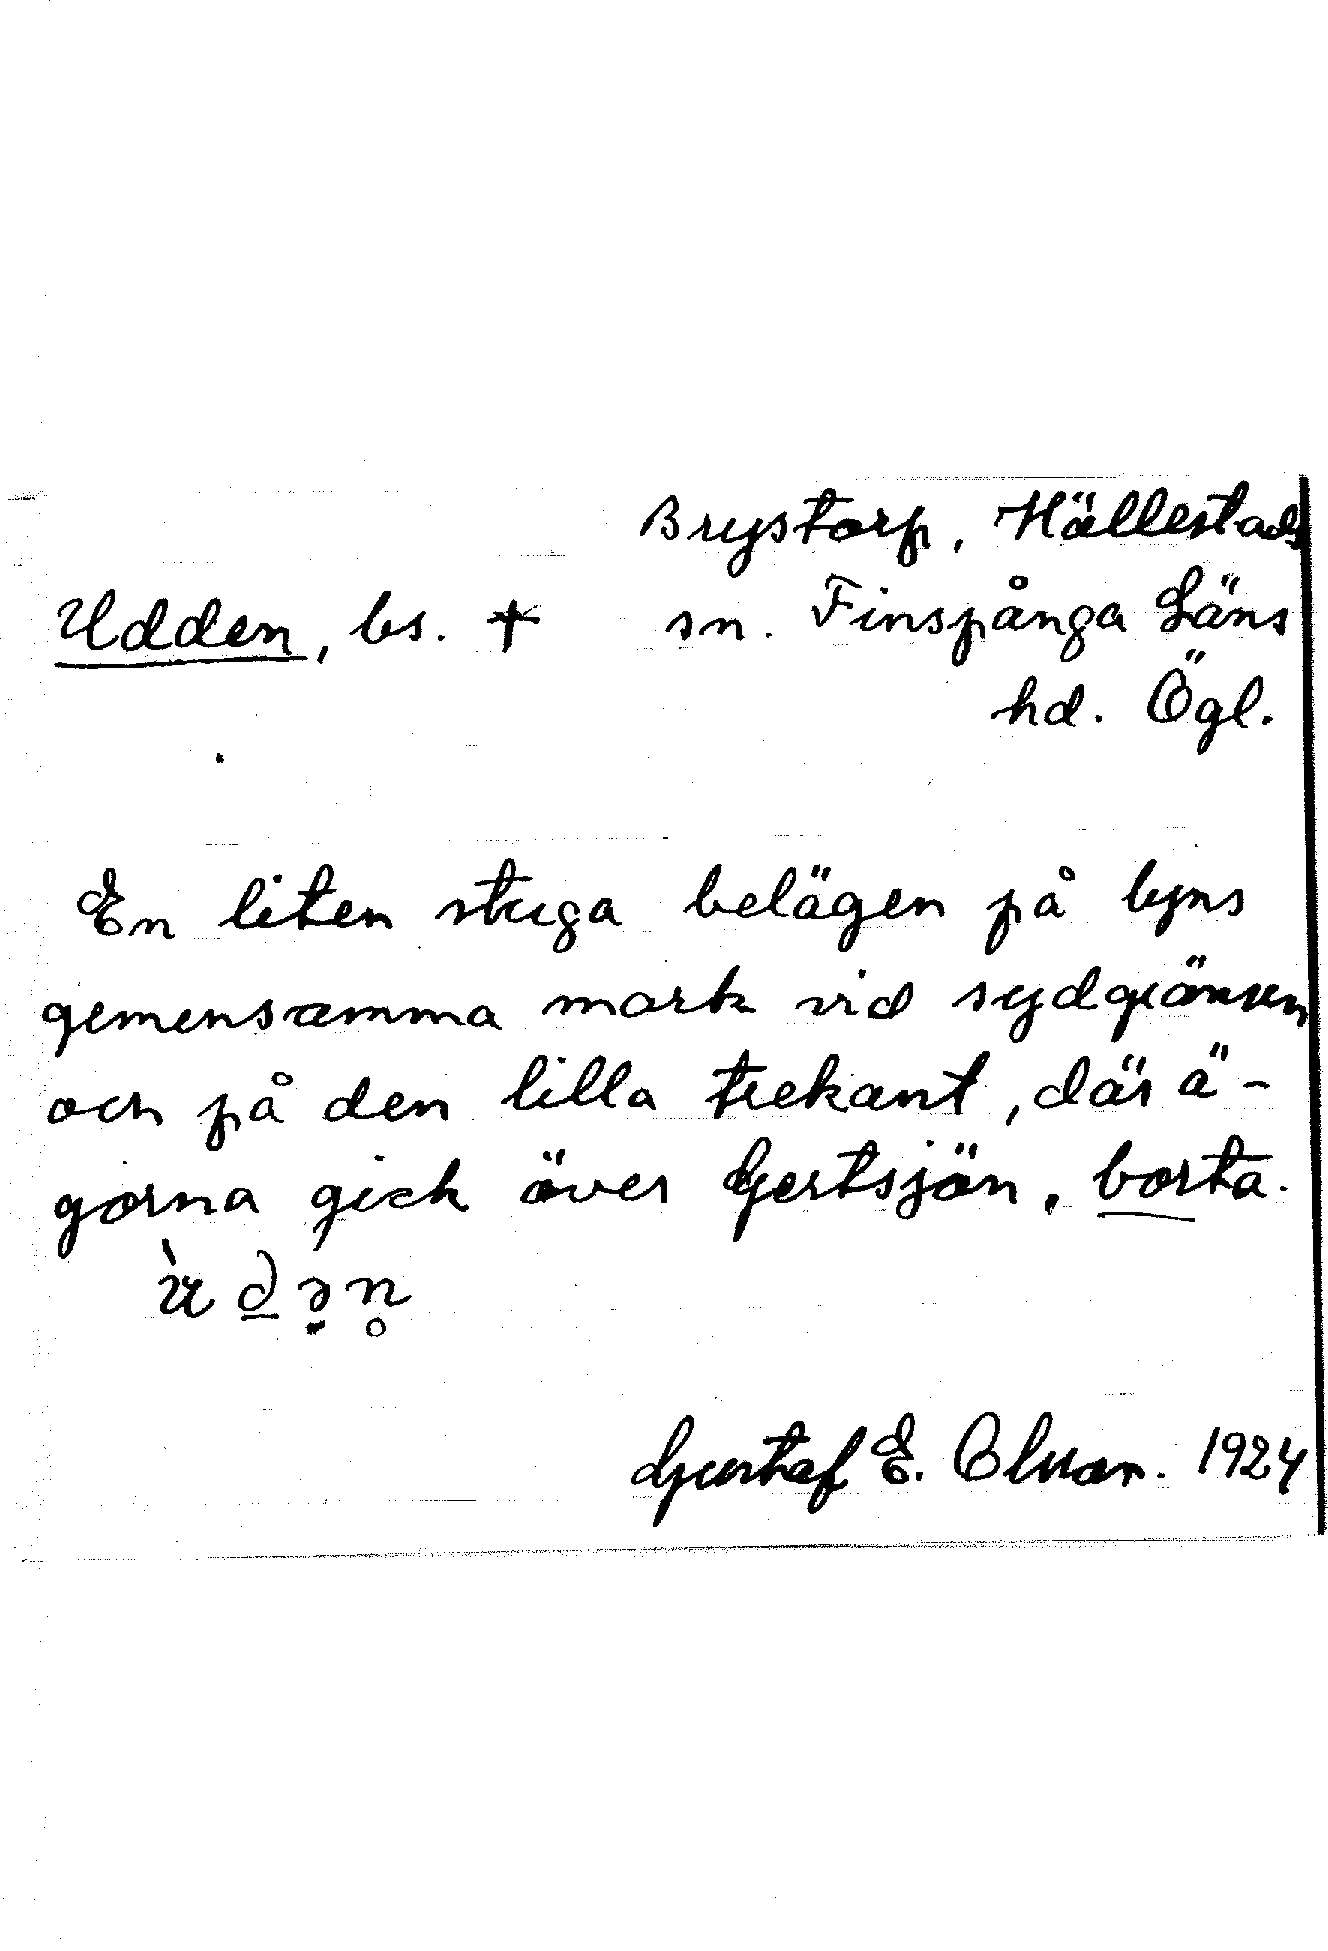 Brystorp, Hällestads
Udden, bs. † sn. Finspånga Läns
hd. Ögl.
En liten stuga belägen på byns
gemensamma mark vid sydgränsen
och på den lilla trekant, där ä-
gorna gick över Gertsjön, borta.
ù d ə n̥
Gustaf E. Olsson. 1924